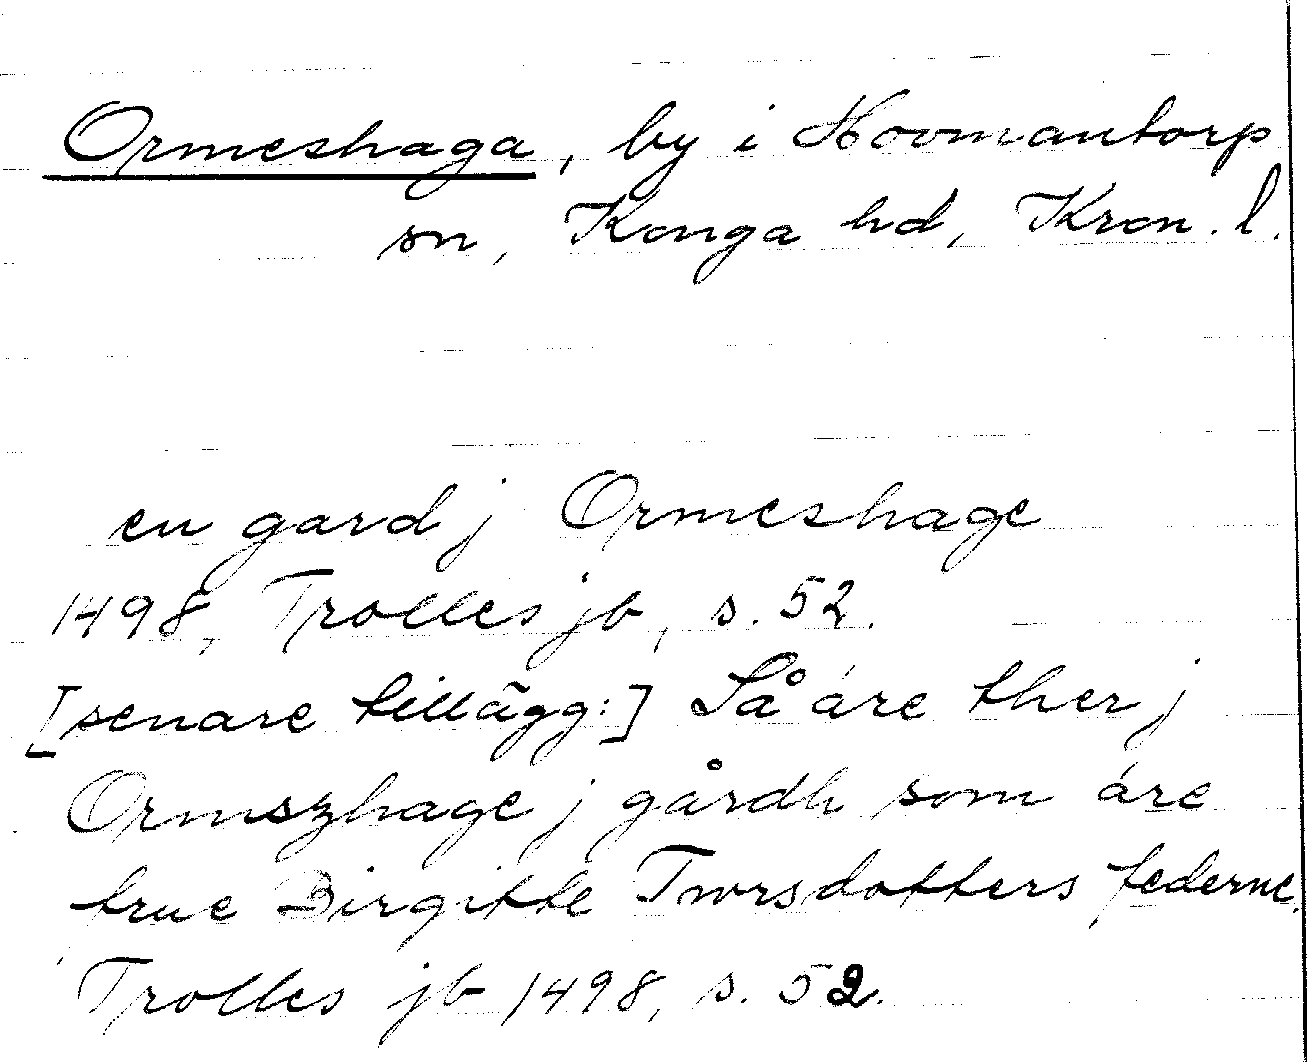 Ormeshaga, by i Hovmantorp
sn, Konga hd, Kron. l.
en gard j Ormeshage
1498, Trolles jb, s. 52.
[senare tillägg:] Så áre ther j
Ormszhage j gårdh som áre
frue Birgitte Twrsdotters federne.
Trolles jb 1498, s. 52.